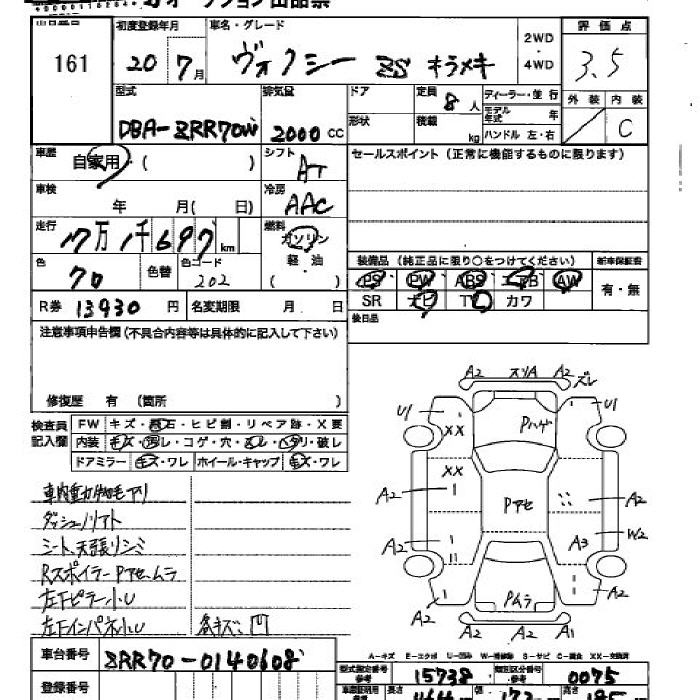 オークション出品票
初度登録年月 車名・グレード 2WD ・ 4WD 評価点
161 20 7月 ヴォクシー ZS キラメキ 3.5
型式 排気量 ドア 定員 8人 ディーラー・並行 外装 内装
DBA-ZRR70W 2000 CC 形状 積載 kg モデル年式 年 C
ハンドル 左・右
車歴 自家用 ( ) シフト AT セールスポイント (正常に機能するものに限ります)
車検 年 月( 日) 冷房 AAC
走行 17万1千697 km 燃料 ガソリン
色 70 色替 色コード 202 軽油 ( )
装備品 (純正品に限り○をつけてください) 新車保証書
PS PW ABS エアB AW 有・無
SR ナビ TV カワ
R券 13930 円 名変期限 月 日 後日品
注意事項申告欄 (不具合内容等は具体的に記入して下さい)
修復歴 有 (箇所 )
検査員記入欄 FW キズ・飛石・ヒビ割・リペア跡・X要
内装 キズ・汚レ・コゲ・穴・スレ・ヘタリ・破レ
ドアミラー キズ・ワレ ホイール・キャップ キズ・ワレ
ダッシュノリアト
シート、天張りシミ
RスポイラーPアセ、ムラ
左下ピラー小U
左下インパネ小U 各キズ、凹
A2 スリA A2 ズレ
U1 XX Pハゲ U1
XX
A2 Pアセ A2
A2 A3 W2
A2 Pムラ A2
A2 A2 A1
A-キズ E-エクボ U-凹み W-補修跡 S-サビ C-腐食 XX-交換済
車台番号 ZRR70-0140608
型式指定番号 参考 15738 類別区分番号 参考 0075
登録番号
長さ 幅 高さ